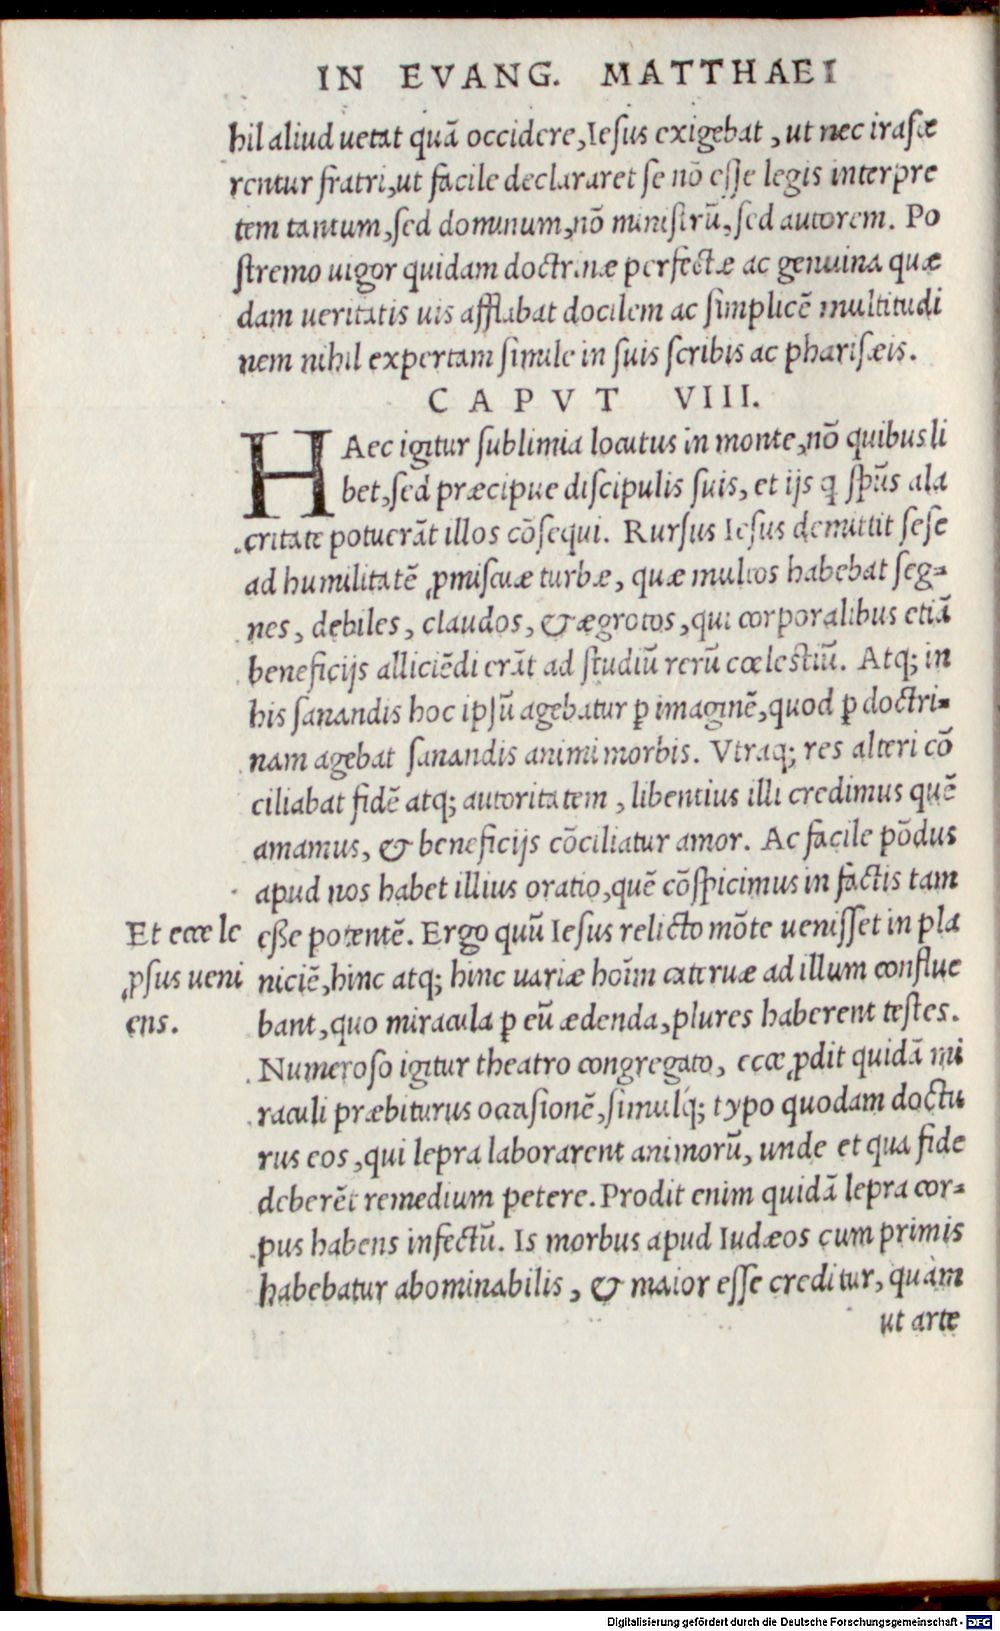 IN EVANG. MATTHAEI
hil aliud uetat quā occidere, Iesus exigebat, ut nec irasce
rentur fratri, ut facile declararet se nō esse legis interpre
tem tantum, sed dominum, nō ministrū, sed autorem. Po
stremo uigor quidam doctrinæ perfectæ ac genuina quæ
dam ueritatis uis afflabat docilem ac simplicē multitudi
nem nihil expertam simile in suis scribis ac pharisæis.
CAPVT VIII.
HAec igitur sublimia locutus in monte, nō quibusli
bet, sed præcipue discipulis suis, et ijs q̄ sp̄us ala
critate potuerāt illos cōsequi. Rursus Iesus demittit sese
ad humilitatē ꝓmiscuæ turbæ, quæ multos habebat seg-
nes, debiles, claudos, & ægrotos, qui corporalibus etiā
beneficijs alliciēdi erāt ad studiū rerū cœlestiū. Atq; in
his sanandis hoc ipsū agebatur ꝑ imaginē, quod ꝑ doctri-
nam agebat sanandis animi morbis. Vtraq; res alteri cō
ciliabat fidē atq; autoritatem, libentius illi credimus quē
amamus, & beneficijs cōciliatur amor. Ac facile pōdus
apud nos habet illius oratio, quē cōspicimus in factis tam
Et ecce le
ꝓsus ueni
ens.
eße potentē. Ergo quū Iesus relicto mōte uenisset in pla
niciē, hinc atq; hinc uariæ hoīm cateruæ ad illum conflue
bant, quo miracula ꝑ eū ædenda, plures haberent testes.
Numeroso igitur theatro congregato, ecce ꝓdit quidā mi
raculi præbiturus occasionē, simulq́; typo quodam doctu
rus eos, qui lepra laborarent animorū, unde et qua fide
deberēt remedium petere. Prodit enim quidā lepra cor-
pus habens infectū. Is morbus apud Iudæos cum primis
habebatur abominabilis, & maior esse creditur, quàm
ut arte
Digitalisierung gefördert durch die Deutsche Forschungsgemeinschaft - DFG